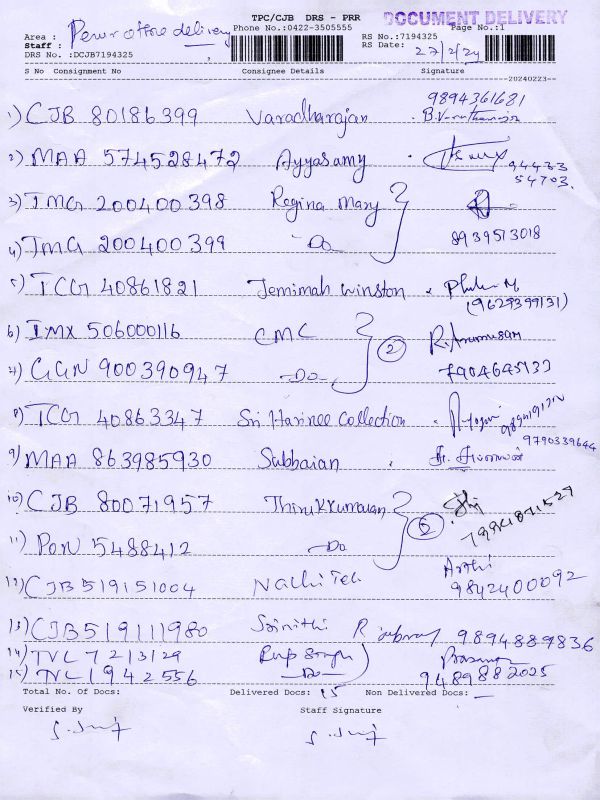 TPC/CJB DRS - PRR DOCUMENT DELIVERY
Area : Perur office delivery Phone No.:0422-3505555 RS No.:7194325 Page No.:1
Staff : RS Date: 27/2/24
DRS No. :DCJB7194325
S No Consignment No Consignee Details Signature
20240223--
1) CJB 80186399 Varadharajan 9894361681
2) MAA 574528472 Ayyasamy 94433 54703.
3) IMG 200400398 Regina Mary
4) IMG 200400399 Do 8939513018
5) TCG 40861821 Jemimah Winston (9629399131)
6) IMX 506000116 CMC 2 R. Arumugam
7) GGN 900390947 Do 7904645133
8) TCG 40863347 Sri Harinee Collection 9790339644
9) MAA 863985930 Subbaian
10) CJB 80071957 Thirukkumaran 2
11) PON 5488412 Do 7994871527
12) CJB 519151004 Nachi Tek Arthi 9842400092
13) CJB 519111980 Srinithi 9894889836
14) TVL 7213129 Rup Singh
15) TVL 1942556 Do 9489882025
Total No. Of Docs: Delivered Docs: 15 Non Delivered Docs: —
Verified By Staff Signature